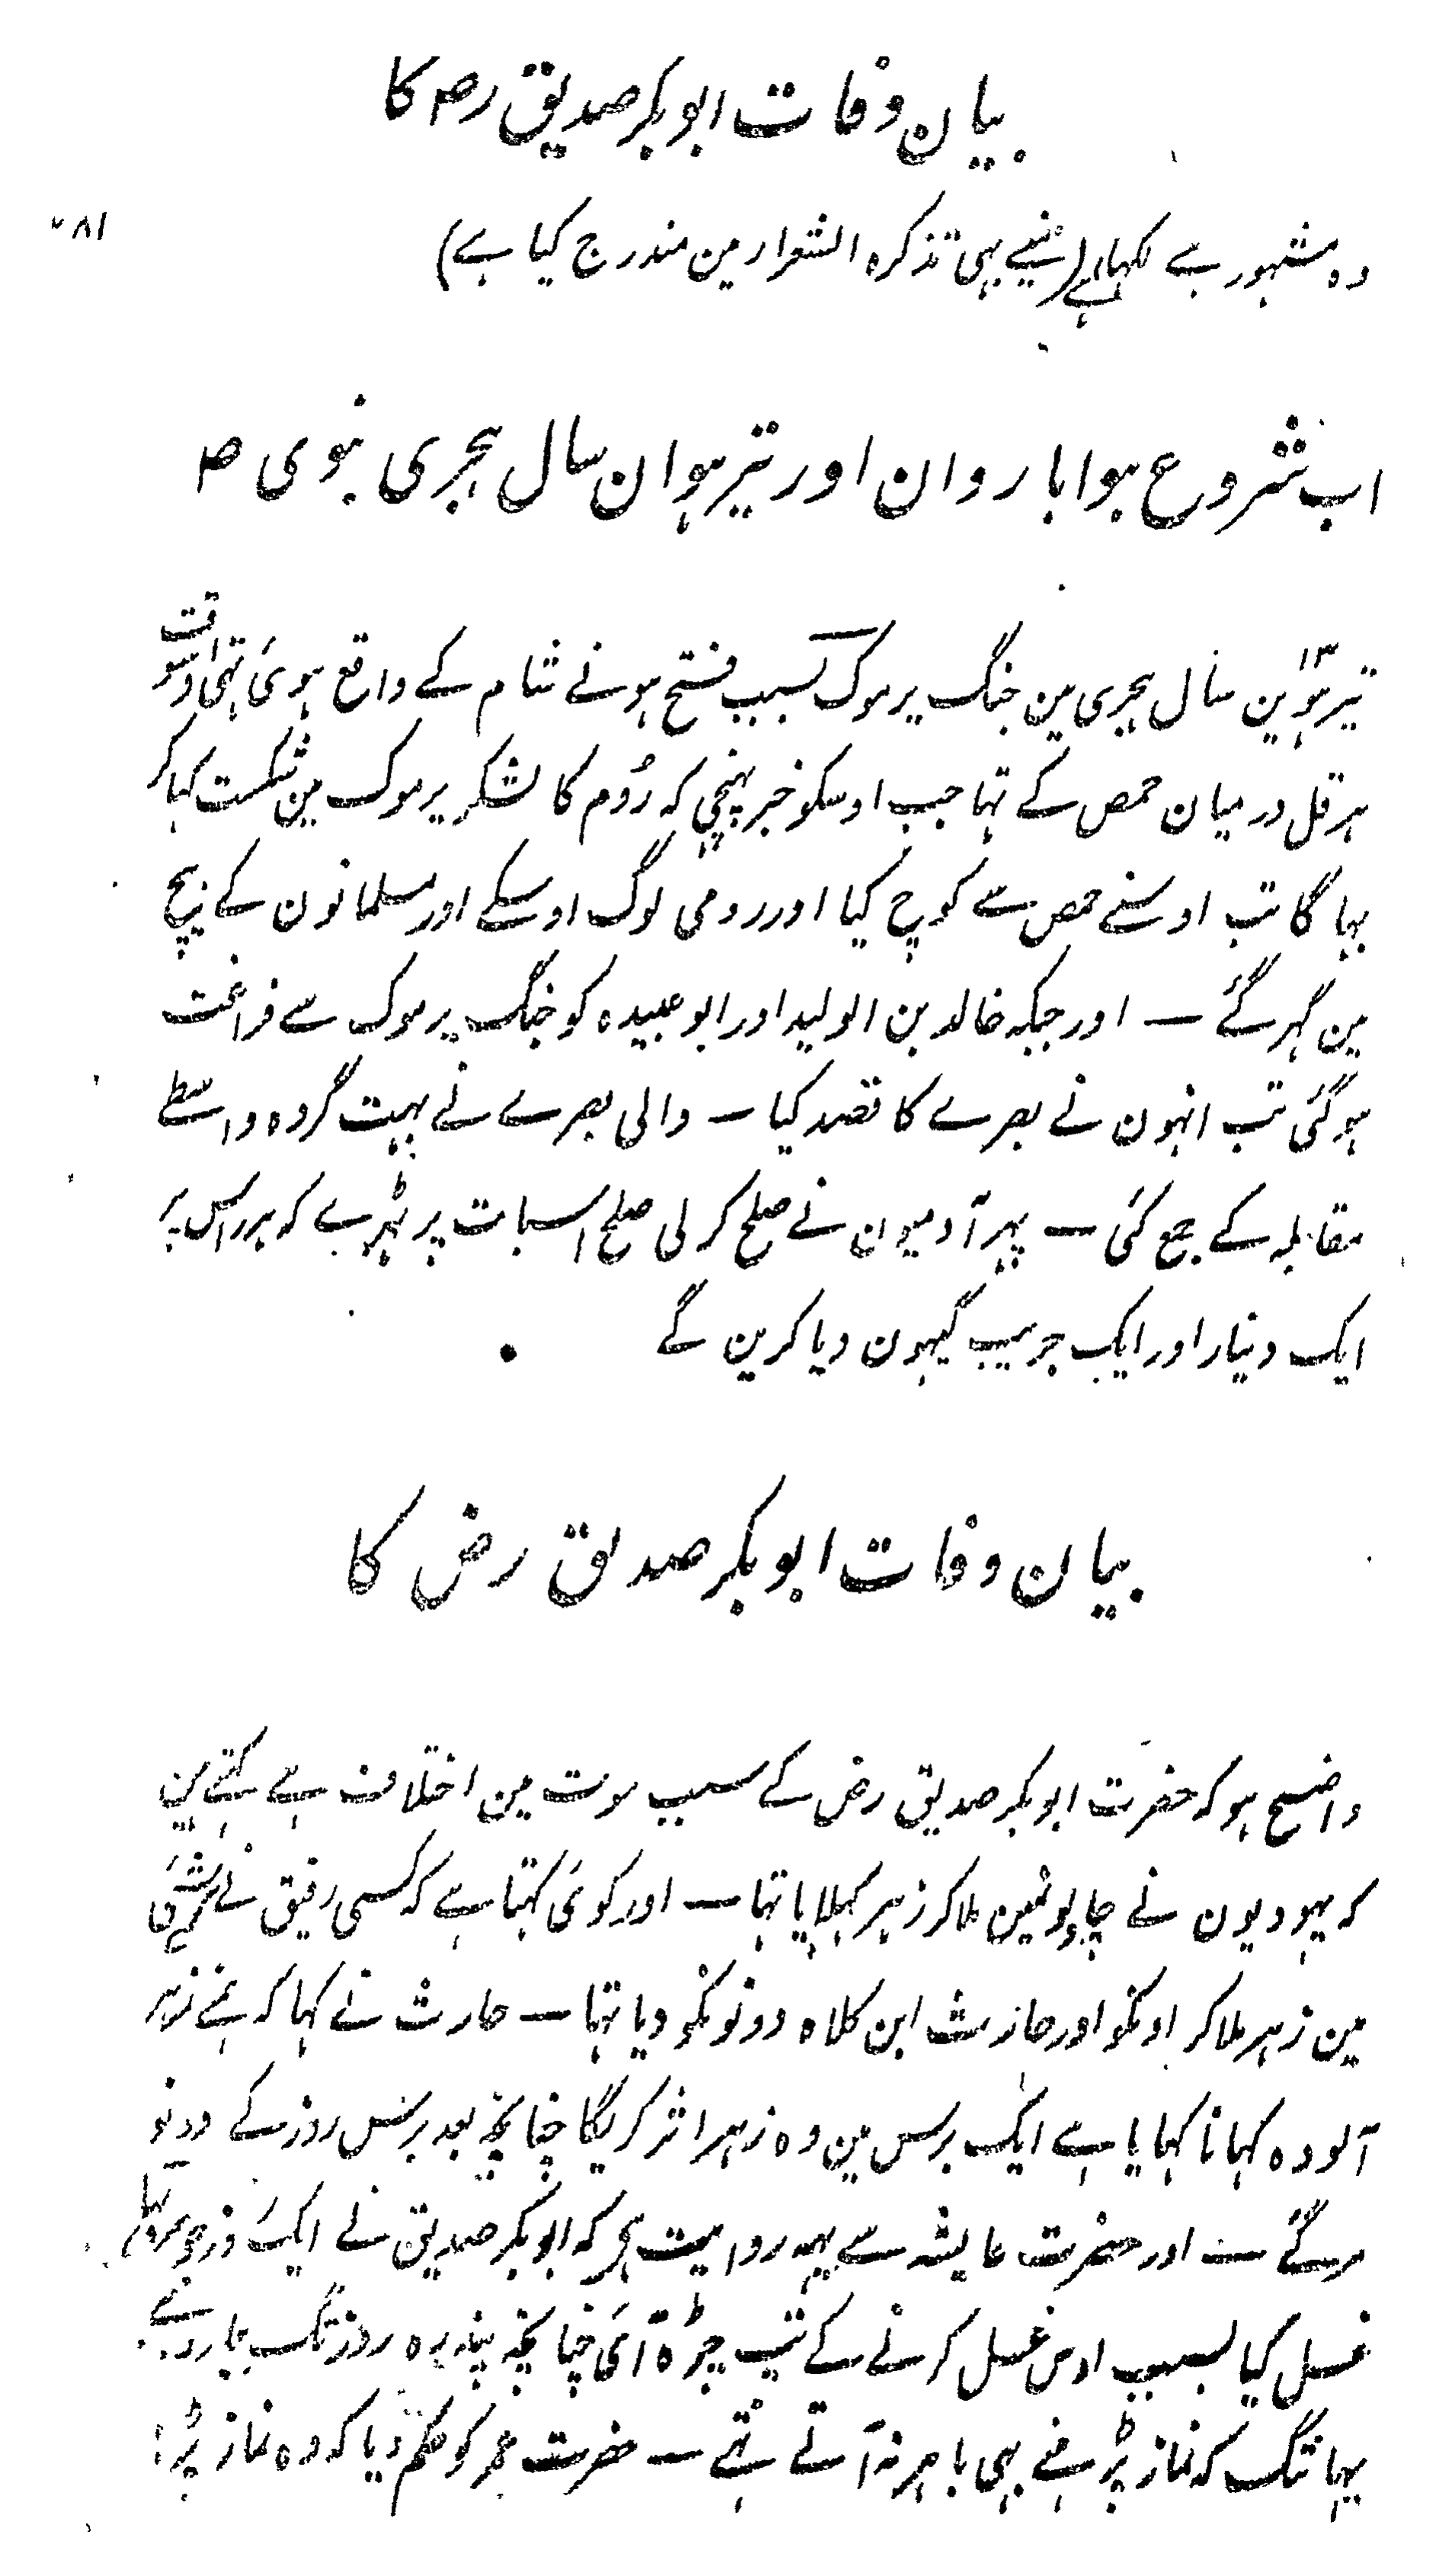 بیان وفات ابوبکر صدیق رض کا
۲۸۱
وہ مشہور ہے لکہا ہے (مینے بہی تذکرہ الشعرار مین مندرج کیا ہے)
اب شروع ہوا باروان اور تیرہوان سال ہجری نبوی ص
تیرہوین ۱۳ سال ہجری مین جنگ یرموک بسبب فتح ہونے شام کے واقع ہوئی تہی اوسوقت
ہرقل درمیان حمص کے تہا جب اوسکو خبر پہنچی کہ رُوم کا لشکر یرموک مین شکست کہا کر
بہاگا تب اوسنے حمص سے کوچ کیا اور رومی لوگ اوسکے اور مسلمانون کے بیچ
مین گہر گئے — اور جبکہ خالد بن الولید اور ابو عبیدہ کو جنگ یرموک سے فراغت
ہوگئی تب انہون نے بصرے کا قصد کیا — والی بصرے نے بہت گروہ واسطے
مقابلہ کے جمع کئی — پہر آدمیون نے صلح کر لی صلح اسبات پر ٹہرے کہ ہر راس پر
ایک دینار اور ایک جریب گیہون دیا کرین گے
بیان وفات ابوبکر صدیق رض کا
واضح ہو کہ حضرت ابوبکر صدیق رض کے سبب موت مین اختلاف ہے کہتے ہین
کہ یہودیون نے چاولونمین ملا کر زہر کہلایا تہا — اور کوئی کہتا ہے کہ کسی رفیق نے
مین زہر ملا کر اونکو اور حارث ابن کلاہ دونونکو دیا تہا — حارث نے کہا کہ ہمنے زہر
آلودہ کہانا کہایا ہے ایک برس مین وہ زہر اثر کریگا چنانچہ بعد برس روز کے دونو
مرگئے — اور حضرت عایشہ سے یہہ روایت ہی کہ ابوبکر صدیق نے ایک روز جو
غسل کیا بسبب اوس غسل کرنے کے تپ چڑہ آئی چنانچہ پندرہ روز تک بیمار رہے
یہانتک کہ نماز پڑہنے بہی باہر نہ آتے تہے — حضرت عمر کو حکم دیا کہ وہ نماز